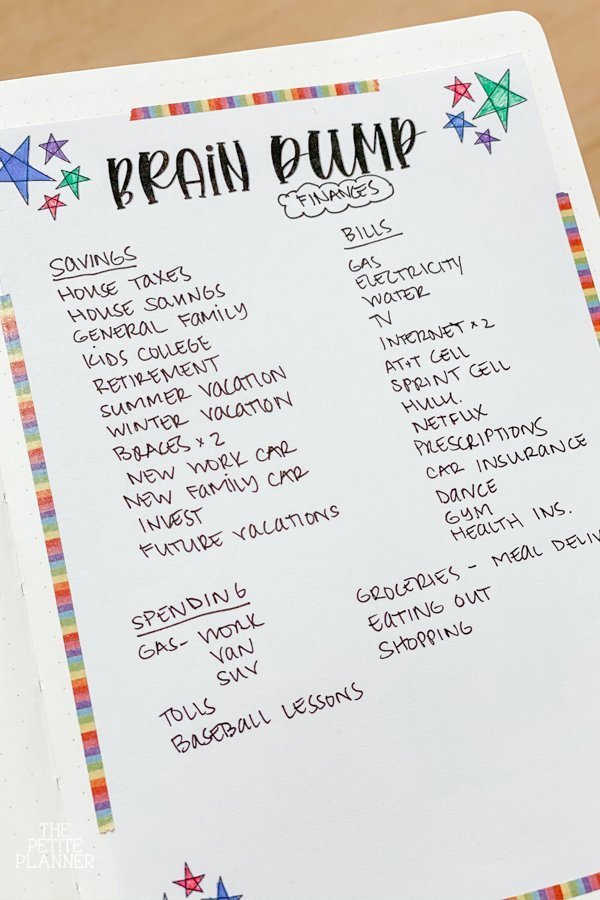 BRAIN DUMP
FINANCES
SAVINGS
HOUSE TAXES
HOUSE SAVINGS
GENERAL FAMILY
KIDS COLLEGE
RETIREMENT
SUMMER VACATION
WINTER VACATION
BRACES x 2
NEW WORK CAR
NEW FAMILY CAR
INVEST
FUTURE VACATIONS
BILLS
GAS
ELECTRICITY
WATER
TV
INTERNET x 2
AT+T CELL
SPRINT CELL
HULU.
NETFLIX
PRESCRIPTIONS
CAR INSURANCE
DANCE
GYM
HEALTH INS.
SPENDING
GAS- WORK
VAN
SUV
TOLLS
BASEBALL LESSONS
GROCERIES - MEAL
EATING OUT
SHOPPING
THE
PETITE
PLANNER